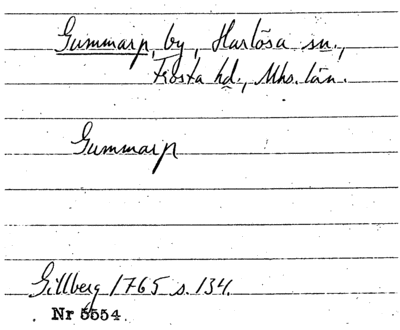 Gummarp, by, Harlösa sn.,
Frosta hd., Mhs. län.
Gummarp
Gillberg 1765 s. 134.
Nr 5554